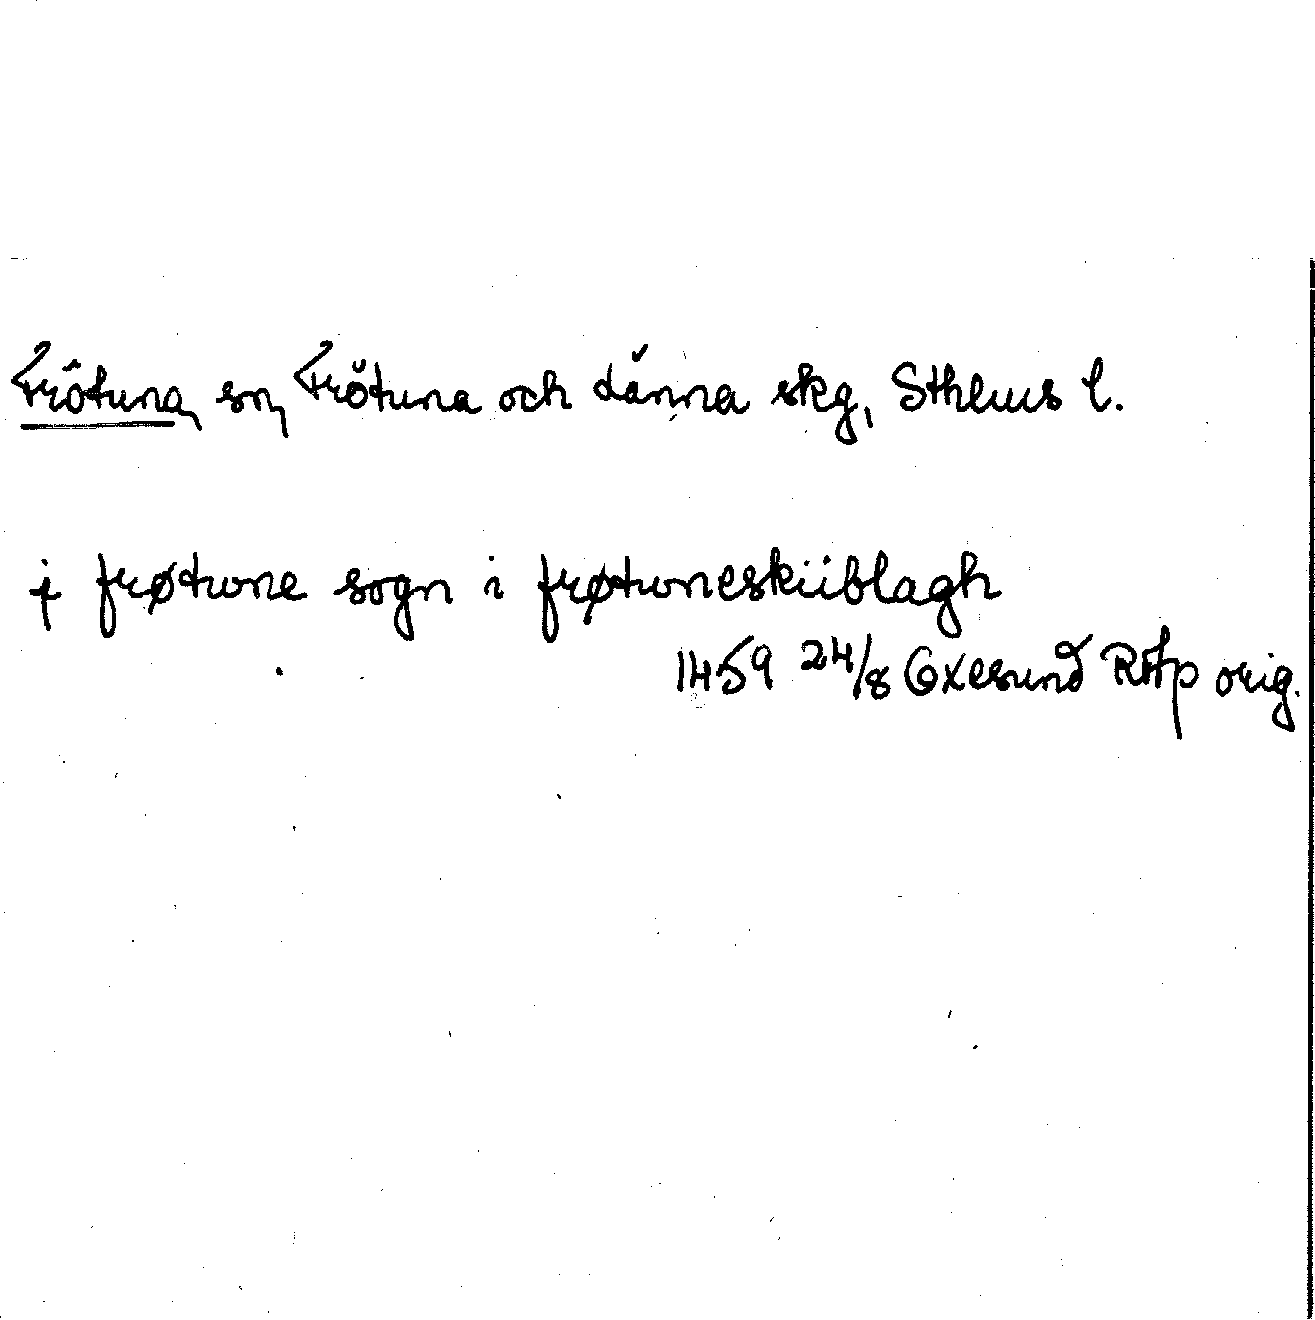 Frötuna, sn, Frötuna och Länna skg, Sthlms l.
j frøtwne sogn i frøtwneskiiblagh
1459 24/8 Oxesund RAp orig.